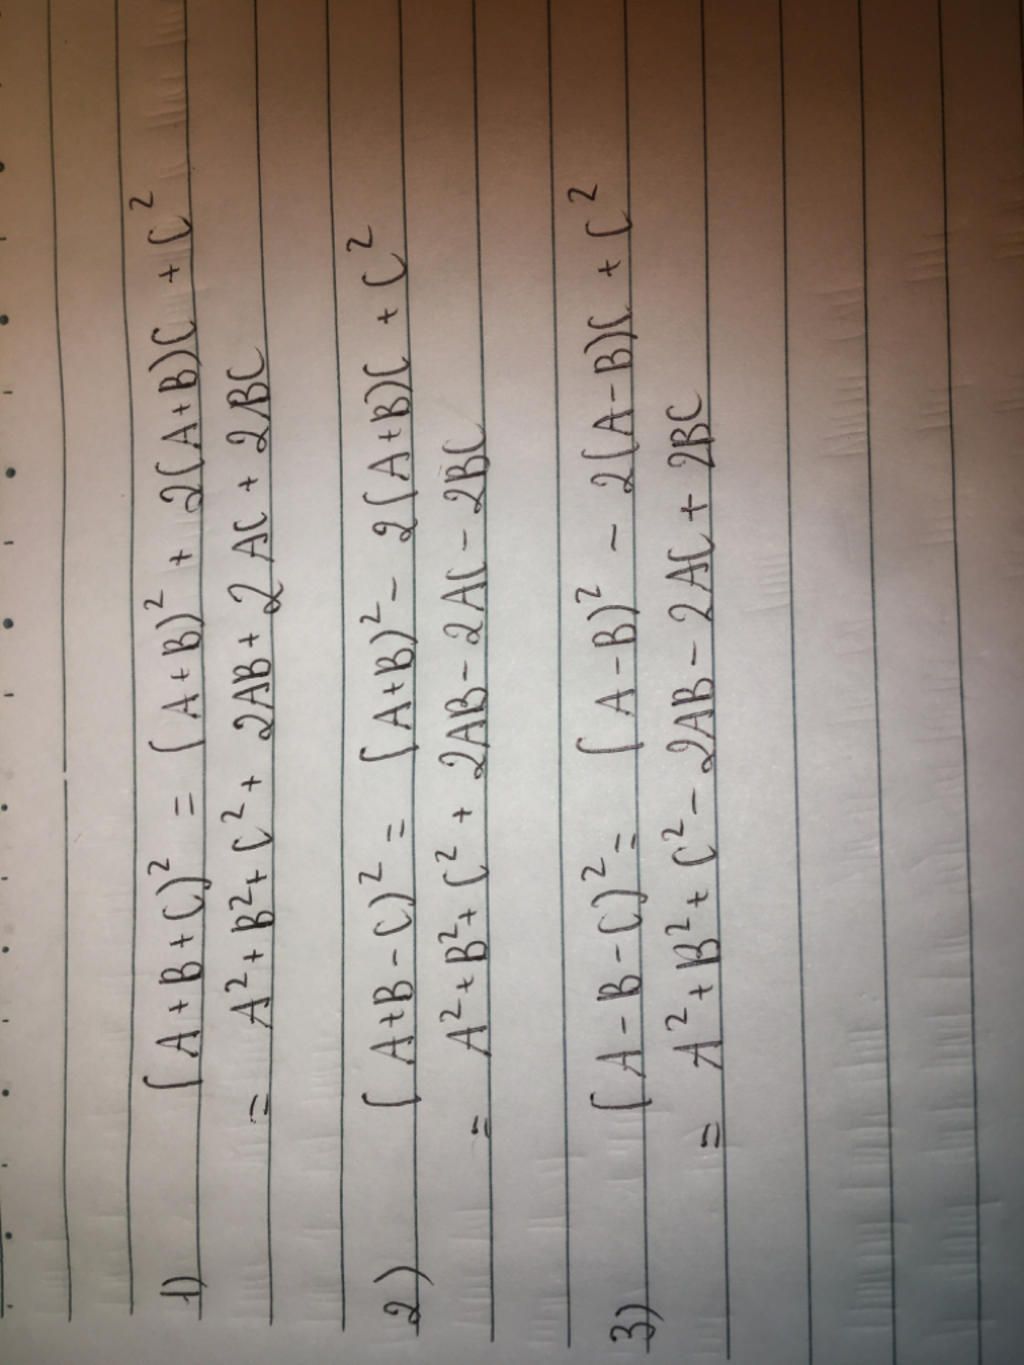 1) (A+B+C)² = (A+B)² + 2(A+B)C + C²
= A²+B²+C²+ 2AB+ 2AC + 2BC
2) (A+B-C)² = (A+B)² - 2(A+B)C + C²
= A²+B²+C² + 2AB-2AC-2BC
3) (A-B-C)² = (A-B)² - 2(A-B)C + C²
= A²+B²+C²-2AB-2AC+2BC